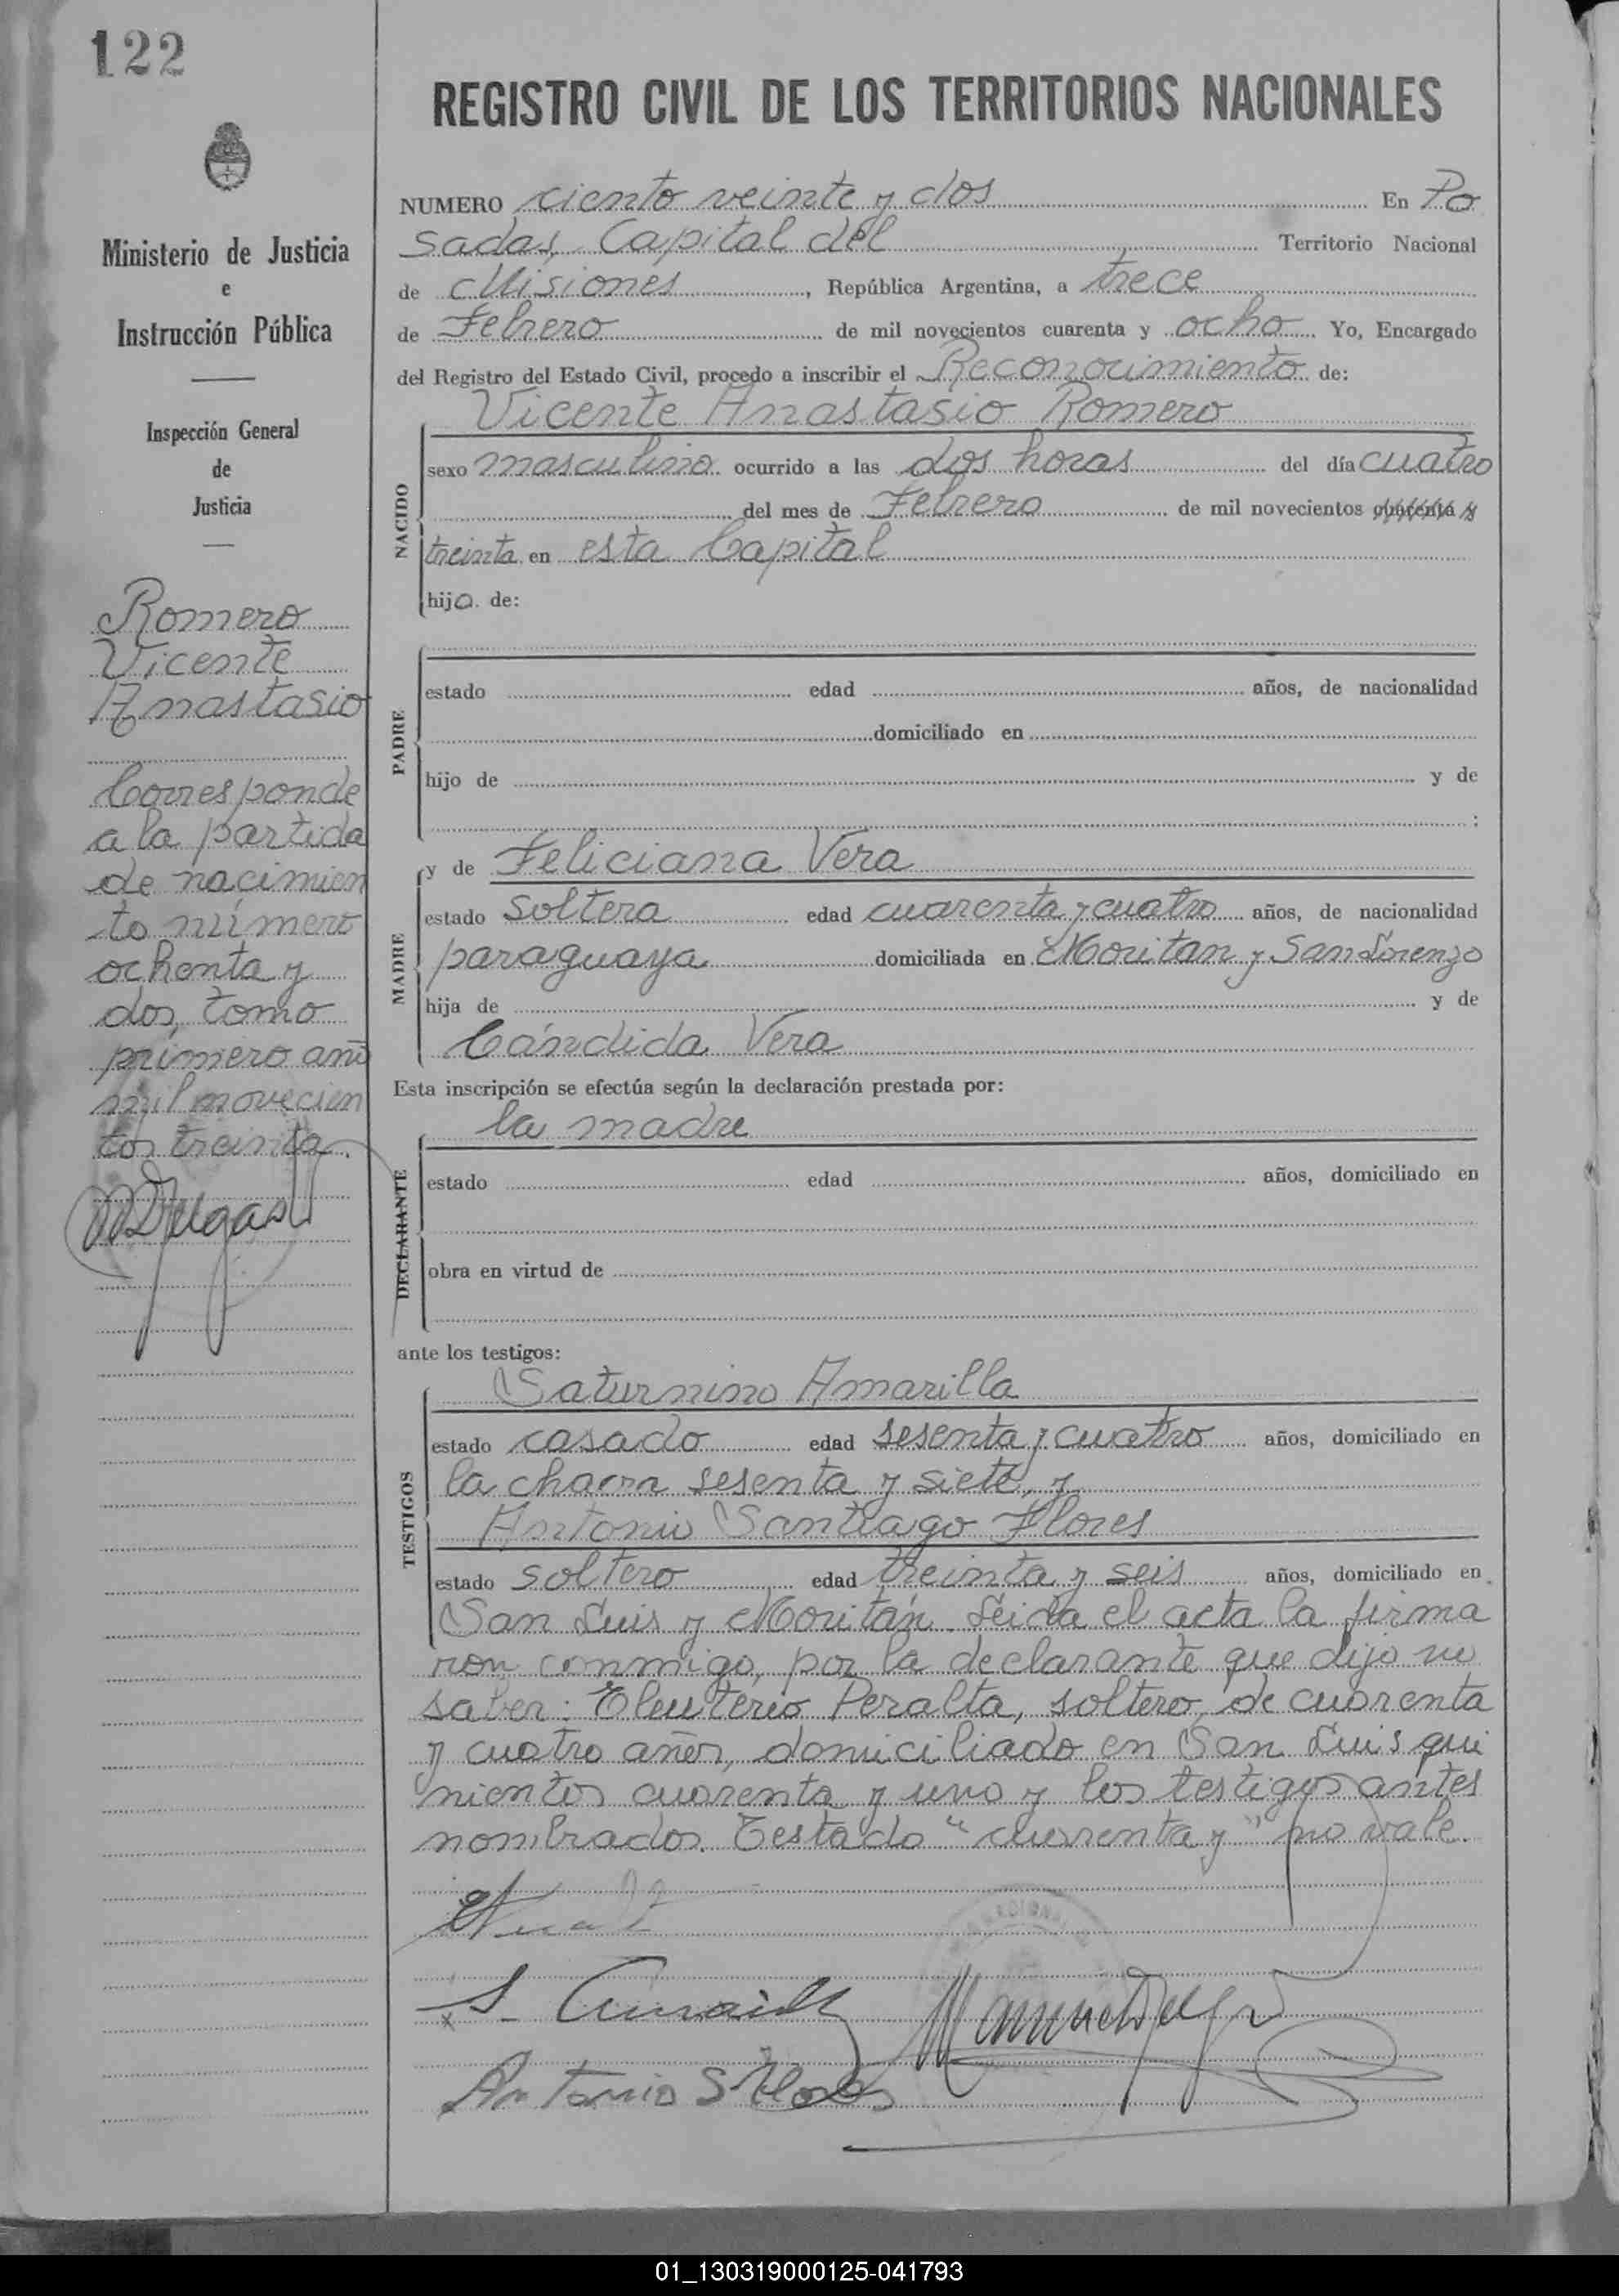 122
Ministerio de Justicia
e
Instrucción Pública
Inspección General
de
Justicia
Romero
Vicente
Anastasio
Corresponde
a la partida
de nacimien
to número
ochenta y
dos, tomo
primero año
mil novecien
tos treinta.
REGISTRO CIVIL DE LOS TERRITORIOS NACIONALES
NUMERO ciento veinte y dos En Po
sadas, Capital del Territorio Nacional
de Misiones, República Argentina, a trece
de Febrero de mil novecientos cuarenta y ocho Yo, Encargado
del Registro del Estado Civil, procedo a inscribir el Reconocimiento de:
Vicente Anastasio Romero
NACIDO
sexo masculino ocurrido a las dos horas del día cuatro
del mes de Febrero de mil novecientos cuarenta y
treinta en esta Capital
hijo de:
PADRE
estado edad años, de nacionalidad
domiciliado en
hijo de y de
:
MADRE
y de Feliciana Vera
estado soltera edad cuarenta y cuatro años, de nacionalidad
paraguaya domiciliada en Moritan y San Lorenzo
hija de y de
Cándida Vera
Esta inscripción se efectúa según la declaración prestada por:
la madre
DECLARANTE
estado edad años, domiciliado en
obra en virtud de
ante los testigos:
TESTIGOS
Saturnino Amarilla
estado casado edad sesenta y cuatro años, domiciliado en
la chacra sesenta y siete, y
Antonio Santiago Flores
estado soltero edad treinta y seis años, domiciliado en
San Luis y Moritán. Leida el acta la firma
ron conmigo, por la declarante que dijo no
saber: Eleuterio Peralta, soltero, de cuarenta
y cuatro años, domiciliado en San Luis qui
nientos cuarenta y uno y los testigos antes
nombrados. Testado "cuarenta y" no vale.
Antonio S Flores
01_130319000125-041793